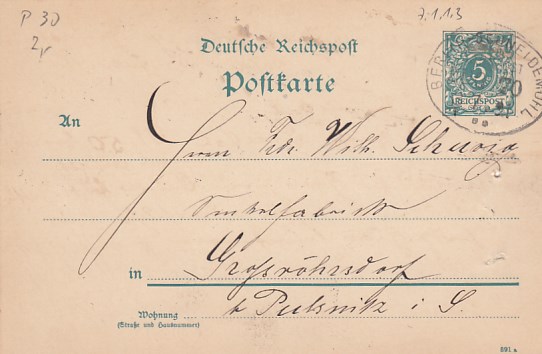 P 30
2,-
7.1.1.3
Deutsche Reichspost
Postkarte
5
REICHSPOST
BERLIN SCHNEIDEMÜHL
An
Herrn Frdr. Wilh. Schurig
in Großröhrsdorf
b Pulsnitz i. S.
Wohnung
(Straße und Hausnummer)
891 a